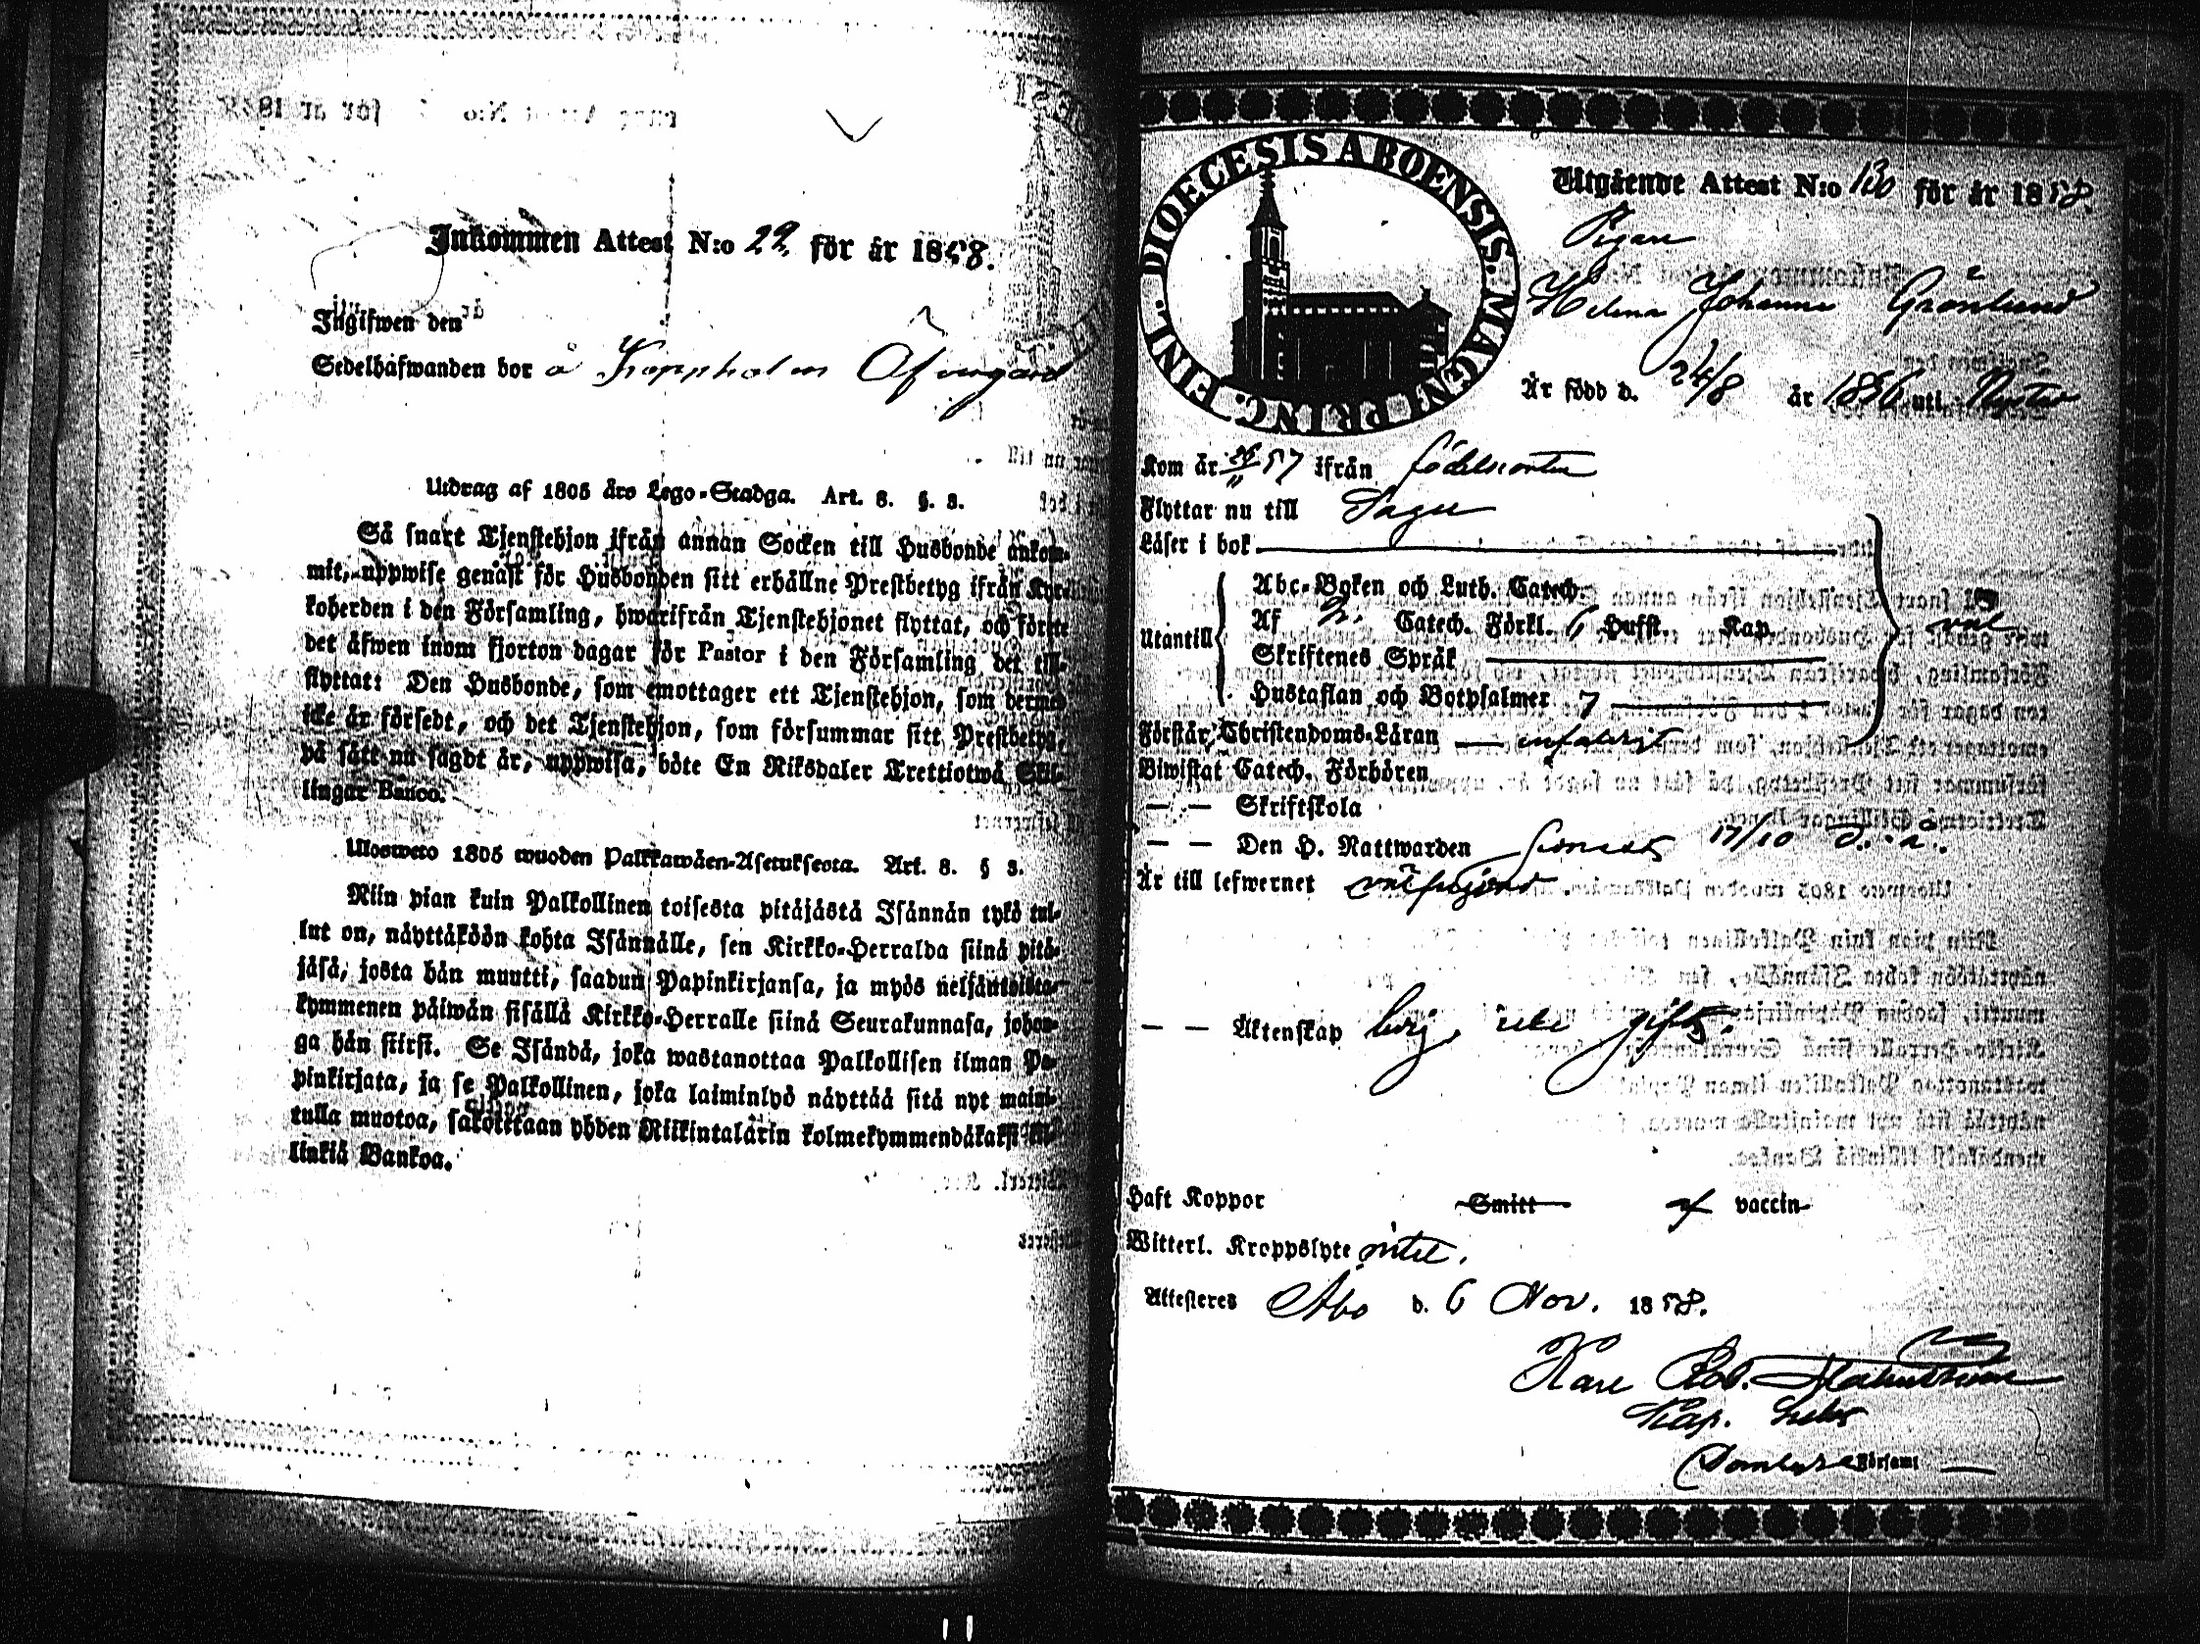 Inkommen Attest N:o 22 för år 1858.
Ingifwen den
Sedelhafwanden bor å Koppholm Öfvergård
Utdrag af 1805 års Lego-Stadga. Art. 8. §. 3.
Så snart Tjenstehjon ifrån annan Socken till Husbonde ankom-
mit, uppwise genast för Husbonden sitt erhållne Prestbetyg ifrån Kyr-
koherden i den Församling, hwarifrån Tjenstehjonet flyttat, och förete
det äfwen inom fjorton dagar för Pastor i den Församling det till-
flyttat: Den Husbonde, som emottager ett Tjenstehjon, som dermed
icke är försedt, och det Tjenstehjon, som försummar sitt Prestbetyg,
på sätt nu sagdt är, uppwisa, böte En Riksdaler Trettiotwå Skil-
lingar Banco.
Ulosweto 1805 wuoden Palkkawäen-Asetuksesta. Art. 8. § 3.
Niin pian kuin Palkollinen toisesta pitäjästä Isännän tykö tul-
lut on, näyttäköön kohta Isännälle, sen Kirkko-Herralda siinä pitä-
jäsä, josta hän muutti, saadun Papinkirjansa, ja myös neljäntoista-
kymmenen päiwän sisällä Kirkko-Herralle siinä Seurakunnasa, johon-
ga hän siirsi. Se Isändä, joka wastanottaa Palkollisen ilman Pa-
pinkirjata, ja se Palkollinen, joka laiminlyö näyttää sitä nyt maini-
tulla muotoa, sakotetaan yhden Riikintalarin kolmekymmendäkaksi kil-
linkiä Bankoa.
DIOECESIS ABOENSIS. MAGNI PRINC. FINL.
Utgående Attest N:o 130 för år 1858.
Pigan
Helena Johanna Grönlund
Är född d. 24/8 år 1836 uti Nystad
Kom år 57 ifrån födelseorten
Flyttar nu till Sagu
Läser i bok
Abc-Boken och Luth. Catech.
Utantill Af Catech. Förkl. 6 Hufst. Kap. väl
Skriftenes Språk
Hustaflan och Botpsalmer 7
Förstår Christendoms-Läran
Biwistat Catech. Förhören
— — Skriftskola
— — Den H. Nattwarden senast 17/10 d. å.
Är till lefwernet välfrejdad.
— — Äktenskap ledig, icke gift.
Haft Koppor Smitt af vaccin
Witterl. Kroppslyte intet.
Attesteres Åbo d. 6 Nov. 1858.
Karl Rob. Malmström
Kap.
Domkyrko Församl